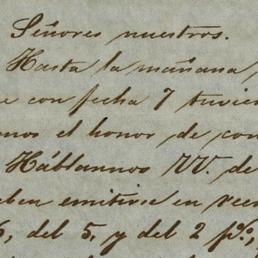 Señores nuestros.
Hasta la mañana
con fecha 7 tuvie
mos el honor de con
Háblannos VV. de
eben emitirse en
del 5, y del 2 p%,